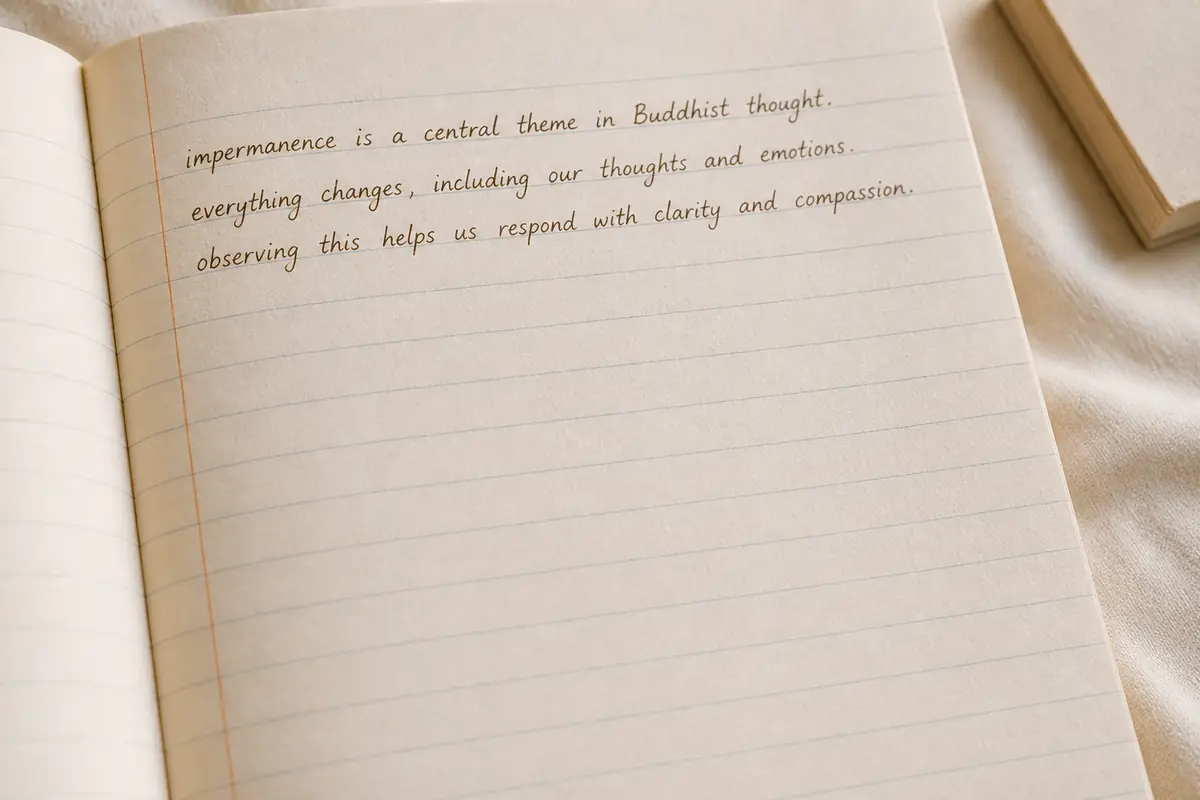 impermanence is a central theme in Buddhist thought.
everything changes, including our thoughts and emotions.
observing this helps us respond with clarity and compassion.